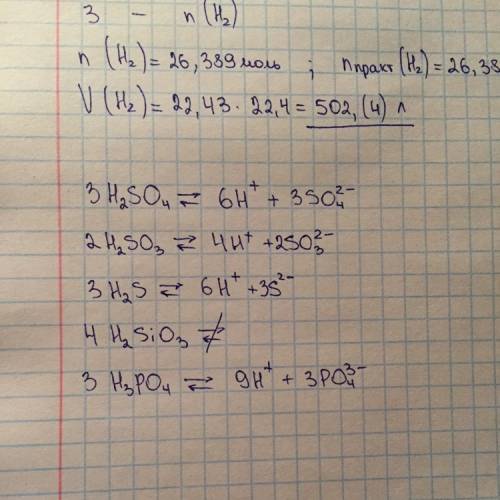 3 – n(H₂)
n(H₂) = 26,389 моль ; nпракт(H₂) = 26,38
V(H₂) = 22,43 · 22,4 = 502,(4) л
3H₂SO₄ ⇄ 6H⁺ + 3SO₄²⁻
2H₂SO₃ ⇄ 4H⁺ + 2SO₃²⁻
3H₂S ⇄ 6H⁺ + 3S²⁻
4 H₂SiO₃ ⇄̸
3 H₃PO₄ ⇄ 9H⁺ + 3PO₄³⁻